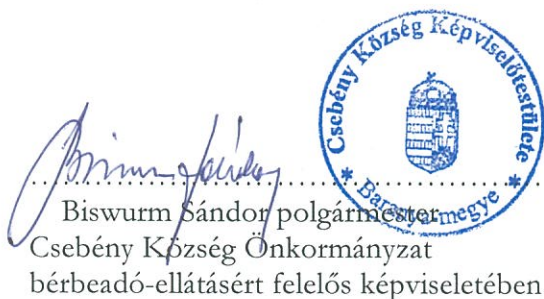 Csebény Község Képviselőtestülete
* Baranya megye *
Biswurm Sándor polgármester
Csebény Község Önkormányzat
bérbeadó-ellátásért felelős képviseletében